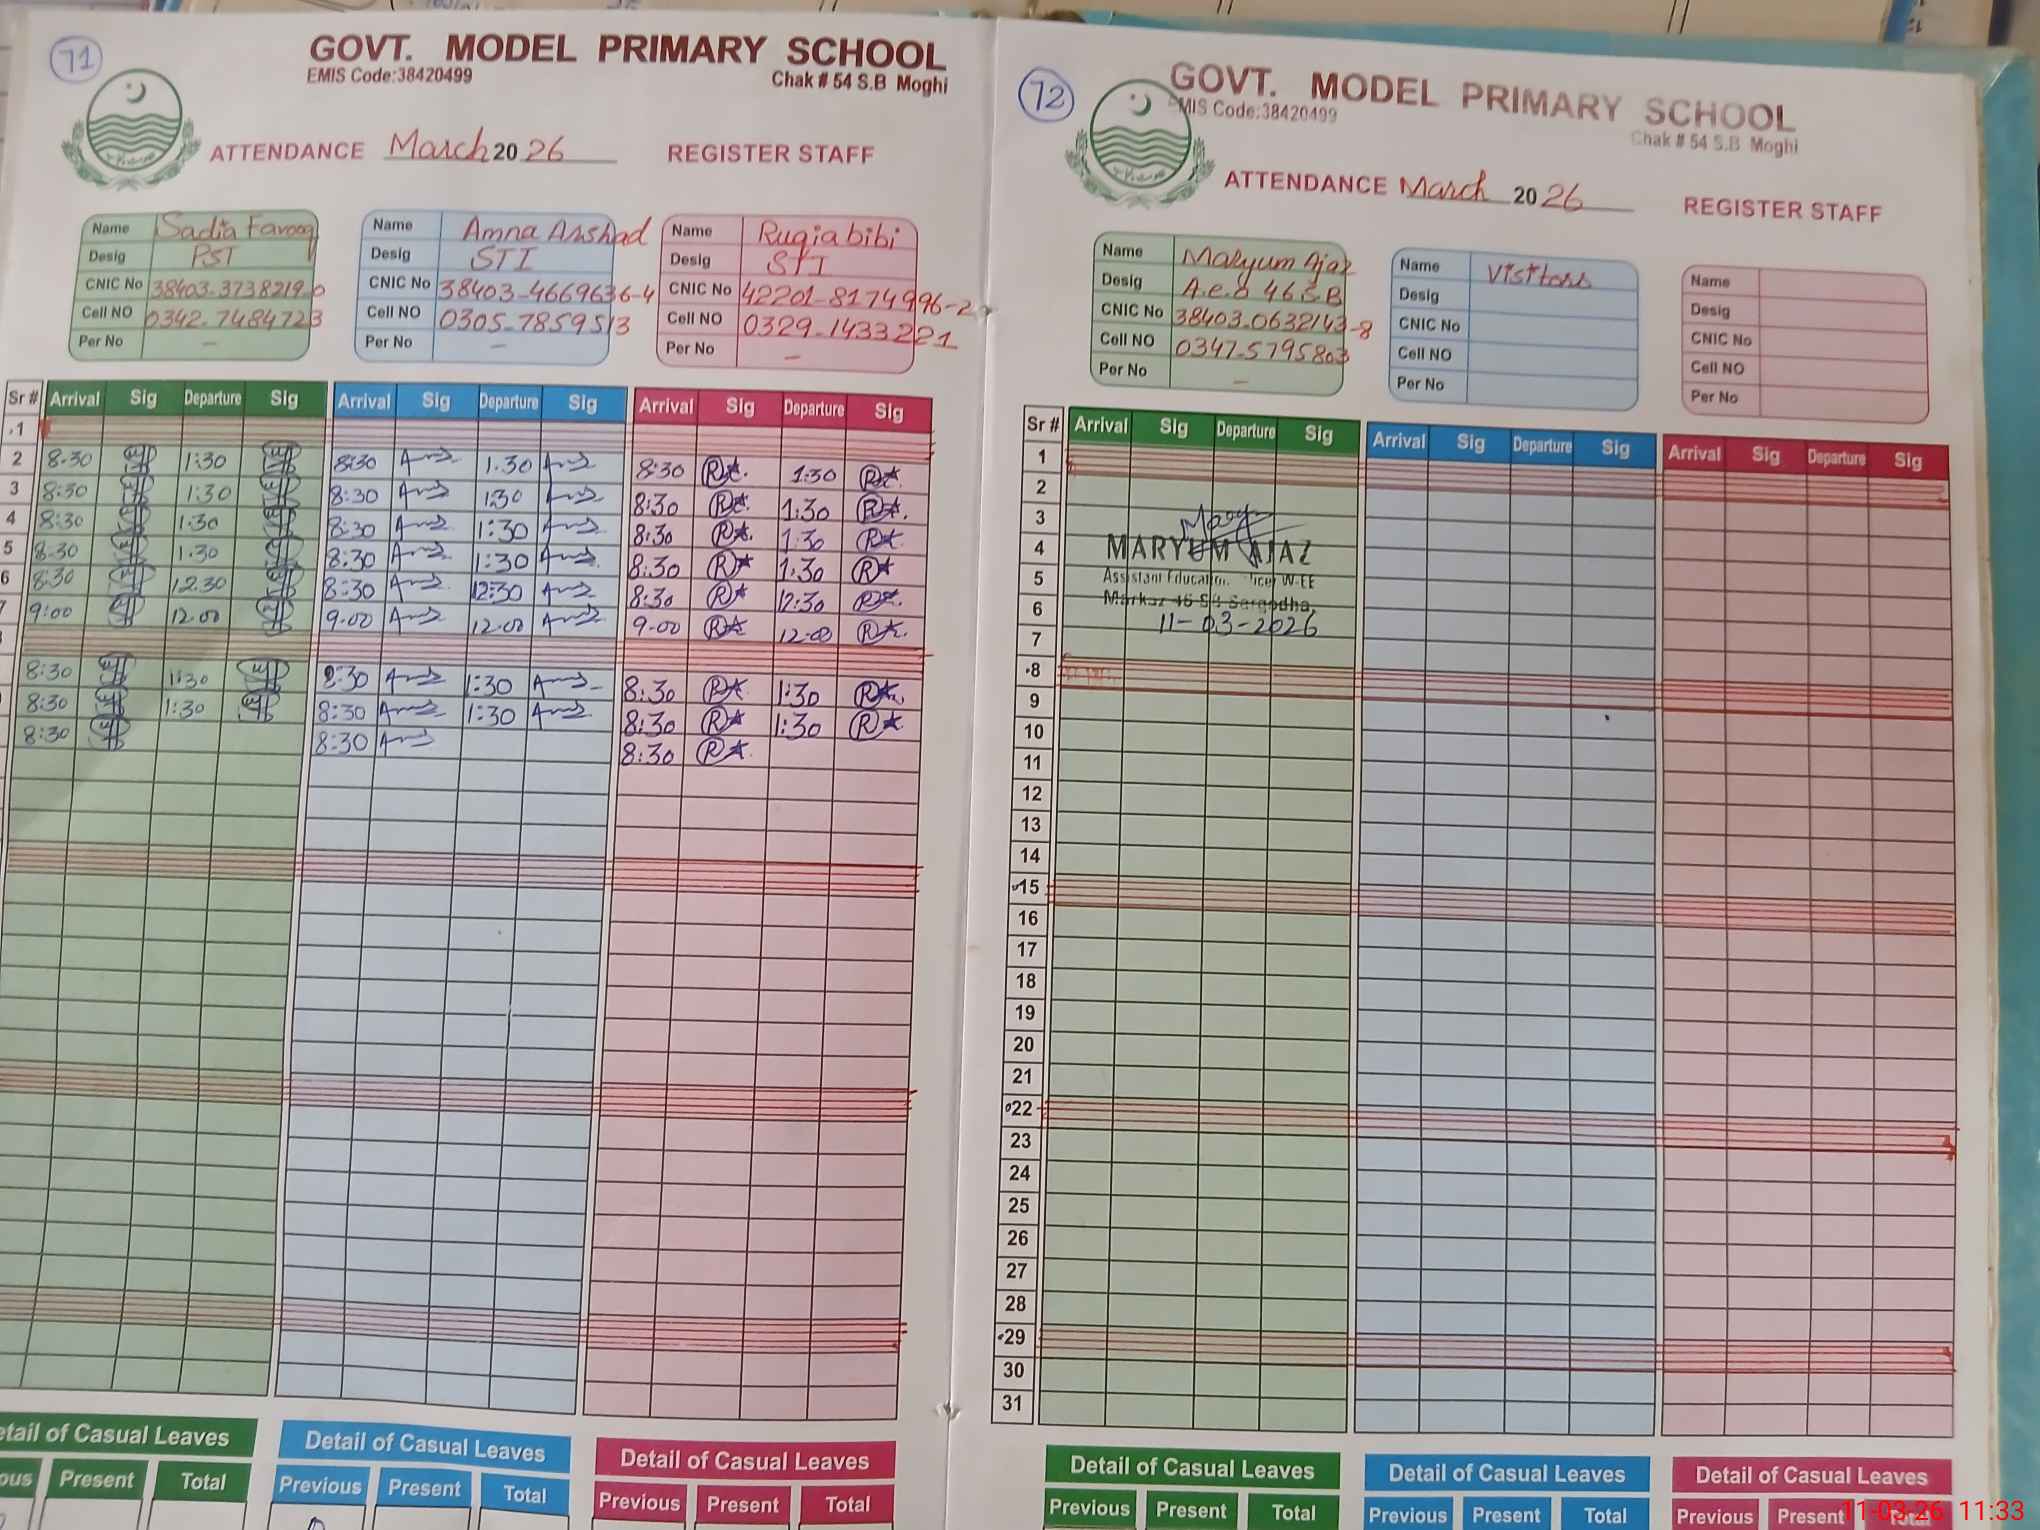 71
GOVT. MODEL PRIMARY SCHOOL
EMIS Code:38420499
Chak # 54 S.B Moghi
ATTENDANCE March 2026 REGISTER STAFF
Name Sadia Farooq
Desig PST
CNIC No 38403-3738219-0
Cell NO 0342-7484723
Per No –
Name Amna Arshad
Desig STI
CNIC No 38403-4669636-4
Cell NO 0305-7859513
Per No –
Name Ruqia bibi
Desig STI
CNIC No 42201-8174996-2
Cell NO 0329-1433221
Per No –
Sr # Arrival Sig Departure Sig Arrival Sig Departure Sig Arrival Sig Departure Sig
1
2 8-30 1:30 8:30 1.30 8:30 1:30
3 8:30 1:30 8:30 1:30 8:30 1:30
4 8:30 1:30 8:30 1:30 8:30 1:30
5 8-30 1.30 8:30 1:30 8:30 1:30
6 8:30 12.30 8:30 12:30 8:30 12:30
7 9:00 12.00 9-00 12.00 9-00 12-00
8:30 1:30 8:30 1:30 8:30 1:30
8:30 1:30 8:30 1:30 8:30 1:30
8:30 8:30 8:30
Detail of Casual Leaves
Present Total
Detail of Casual Leaves
Previous Present Total
Detail of Casual Leaves
Previous Present Total
72
GOVT. MODEL PRIMARY SCHOOL
EMIS Code:38420499
Chak # 54 S.B Moghi
ATTENDANCE March 2026 REGISTER STAFF
Name Maryum Ajaz
Desig A.e.o 46 S.B
CNIC No 38403-0632143-8
Cell NO 0347-5795803
Per No –
Name Visitors
Desig
CNIC No
Cell NO
Per No
Name
Desig
CNIC No
Cell NO
Per No
Sr # Arrival Sig Departure Sig Arrival Sig Departure Sig Arrival Sig Departure Sig
1
2
3
4 MARYUM AJAZ
5 Assistant Education W-EE
6 Markaz 46 SB Sargodha,
11-03-2026
7
8
9
10
11
12
13
14
15
16
17
18
19
20
21
22
23
24
25
26
27
28
29
30
31
Detail of Casual Leaves
Previous Present Total
Detail of Casual Leaves
Previous Present Total
Detail of Casual Leaves
Previous Present Total
11-03-26 11:33